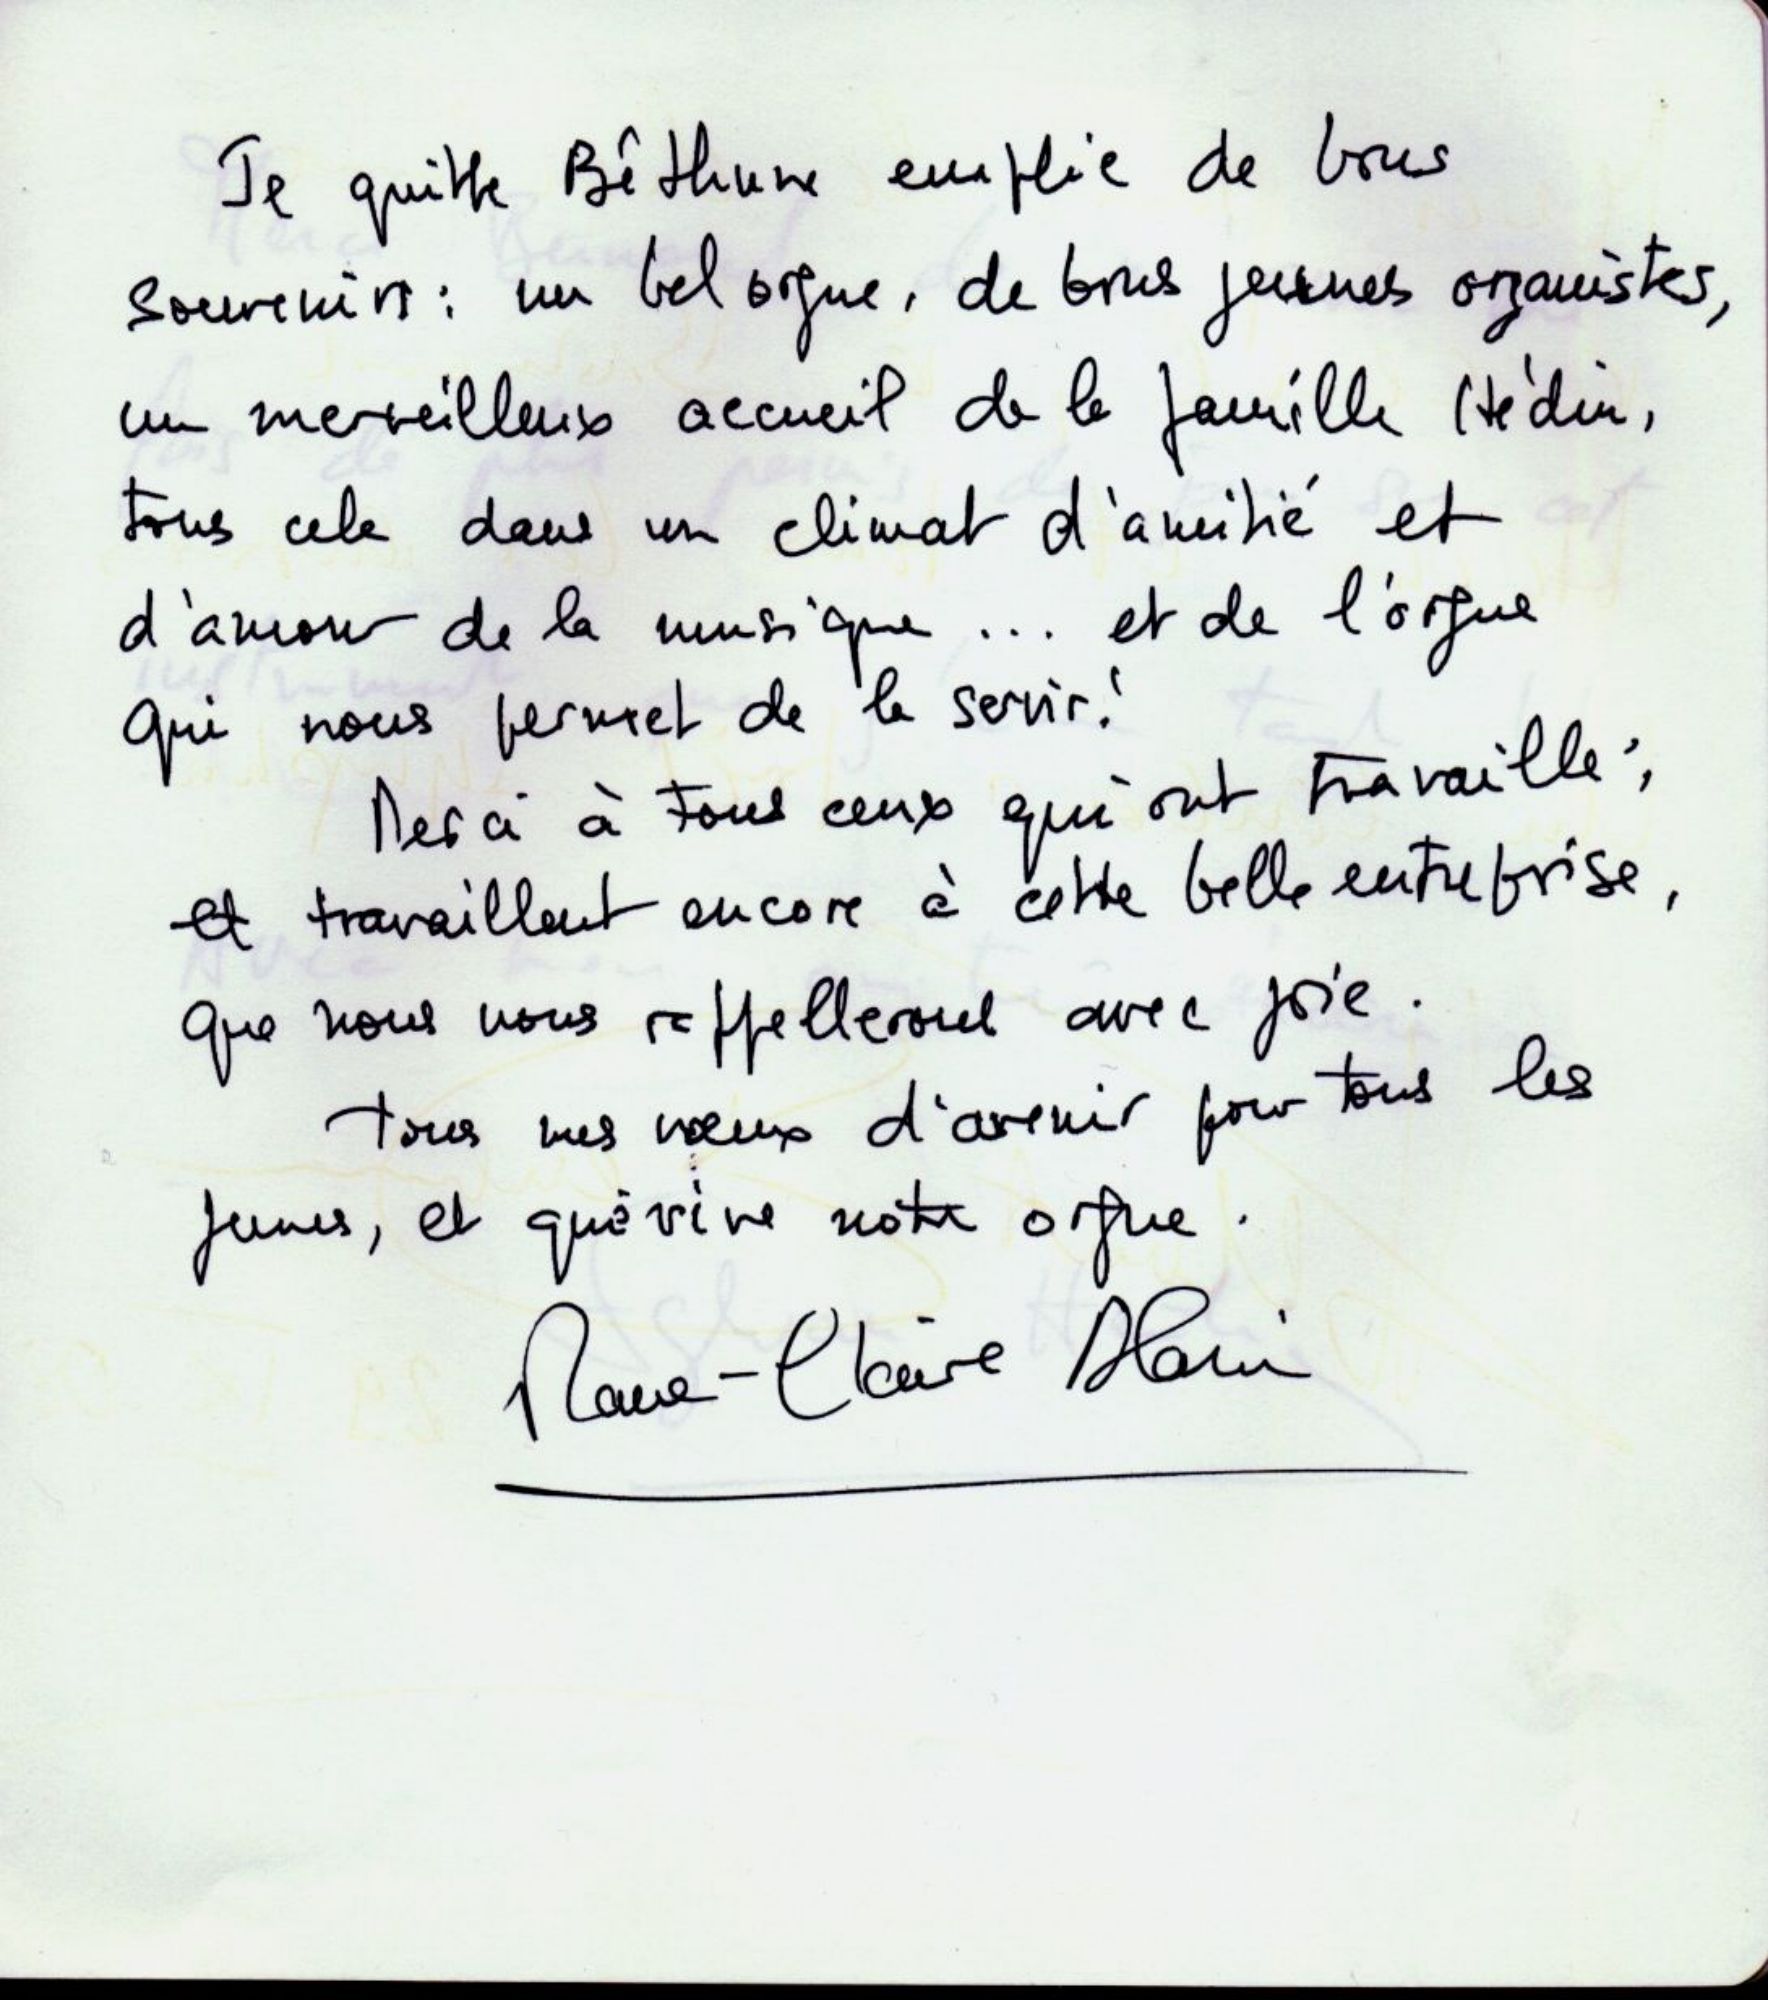 Je quitte Béthune emplie de bons
souvenirs : un bel orgue, de bons jeunes organistes,
un merveilleux accueil de la famille Hédin,
tous cela dans un climat d'amitié et
d'amour de la musique ... et de l'orgue
qui nous permet de la servir !
Merci à tous ceux qui ont travaillé,
et travaillent encore à cette belle entreprise,
que nous nous rappellerons avec joie.
Tous mes vœux d'avenir pour tous les
jeunes, et que vive notre orgue.
Marie-Claire Alain